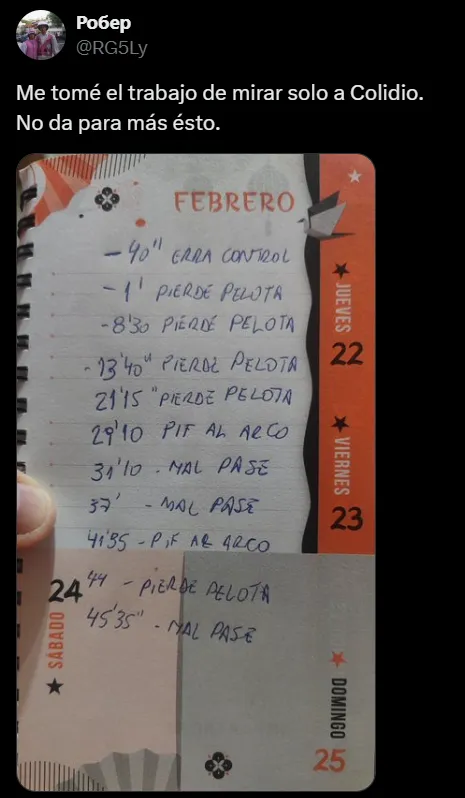 Робер
@RG5Ly
Me tomé el trabajo de mirar solo a Colidio.
No da para más ésto.
FEBRERO
- 40" ERRA CONTROL
- 1' PIERDE PELOTA
- 8'30 PIERDE PELOTA
- 13'40" PIERDE PELOTA
21'15" PIERDE PELOTA
29'10 PIF AL ARCO
31'10 - MAL PASE
37' - MAL PASE
41'35 - PIF AL ARCO
44 - PIERDE PELOTA
45'35" - MAL PASE
JUEVES
22
VIERNES
23
24
SÁBADO
DOMINGO
25